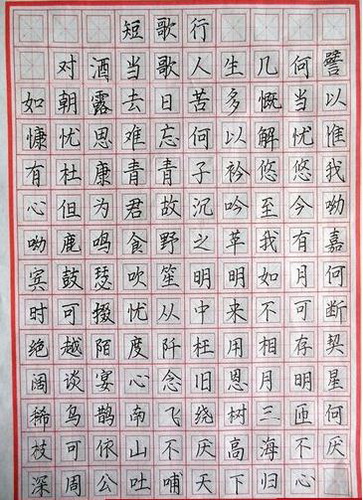 短歌行
对酒当歌人生几何譬
如朝露去日苦多慨当以
慷忧思难忘何以解忧惟
有杜康青青子衿悠悠我
心但为君故沉吟至今呦
呦鹿鸣食野之苹我有嘉
宾鼓瑟吹笙明明如月何
时可掇忧从中来不可断
绝越陌度阡枉用相存契
阔谈宴心念旧恩月明星
稀乌鹊南飞绕树三匝何
枝可依山不厌高海不厌
深周公吐哺天下归心